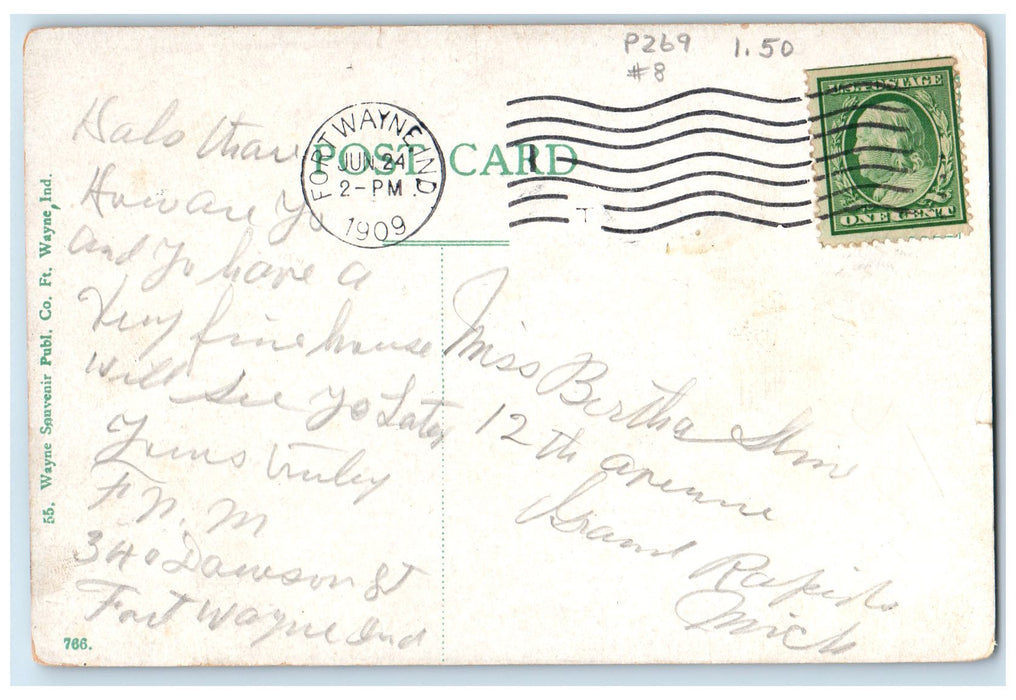 P269 1.50
#8
U.S. POSTAGE
ONE CENT
POST CARD
FORT WAYNE, IND.
JUN 24
2-PM
1909
Halo thare
How are Yo
and Yo have a
Very fine house
will see Yo Later
Yours truley
F. N. M
340 Dawson St
Fort Wayne Ind
Miss Bertha
12 th avenue
Grand Rapids
Mich
55. Wayne Souvenir Publ. Co. Ft. Wayne, Ind.
766.